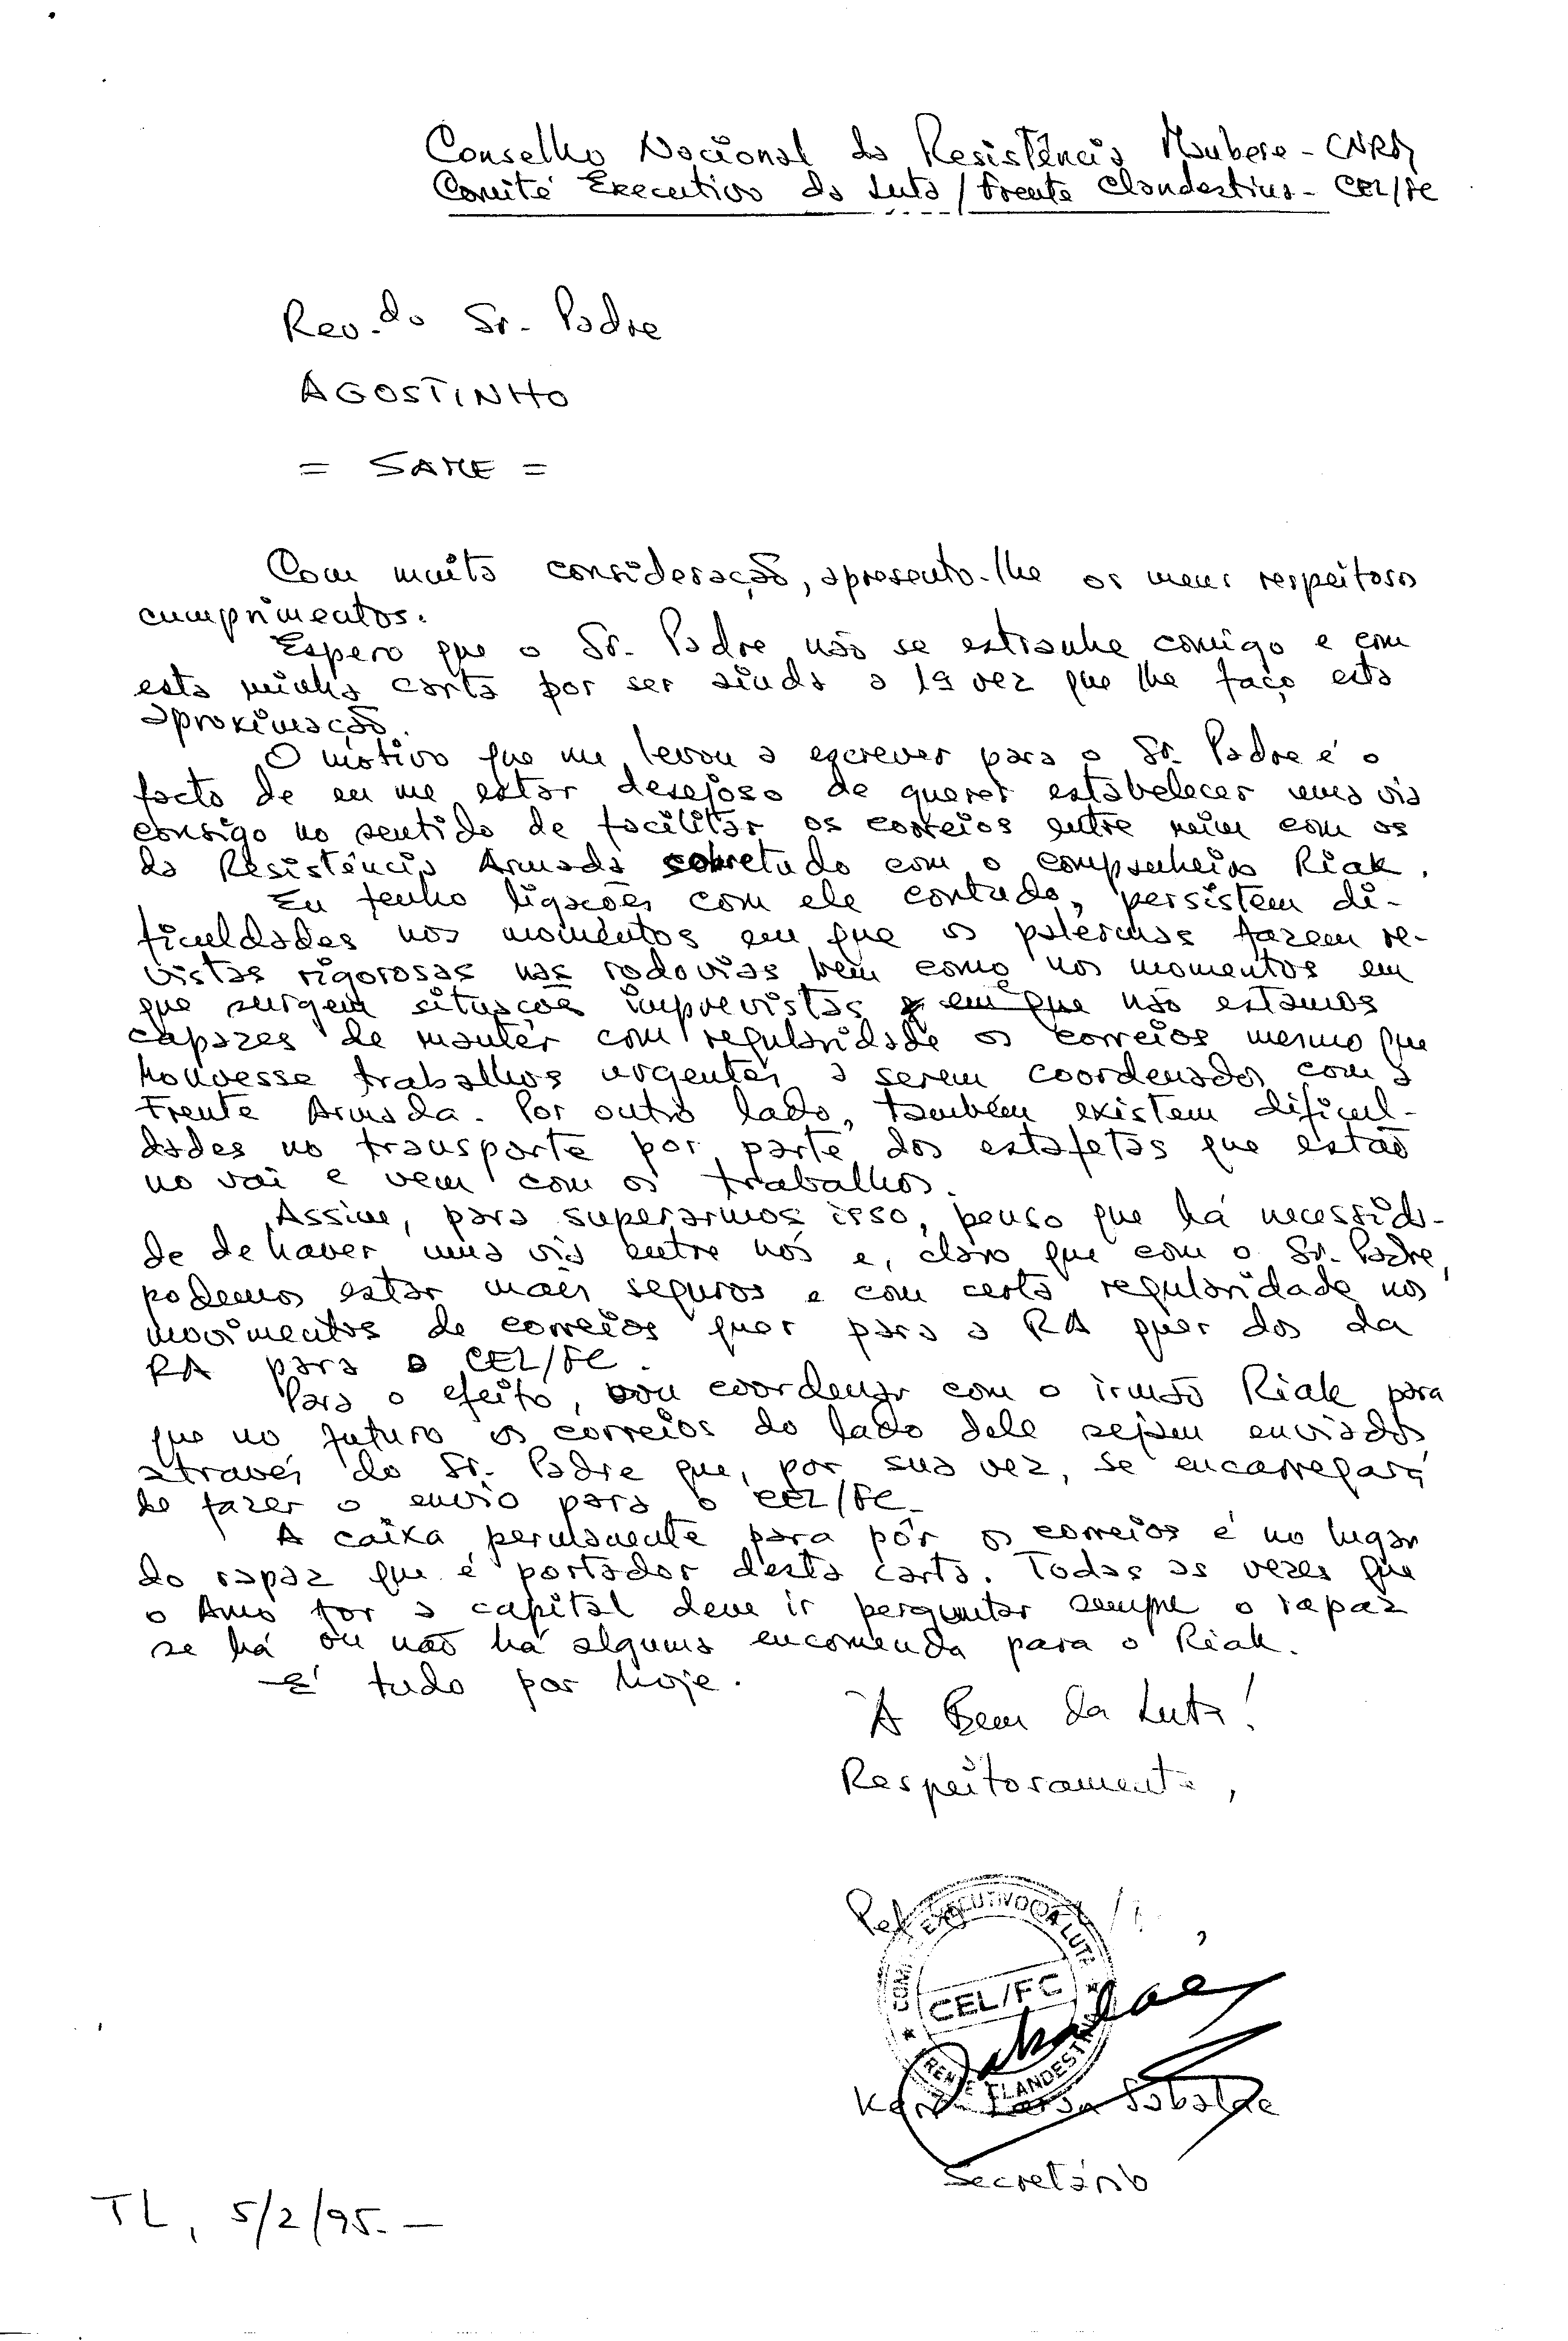 Conselho Nacional da Resistência Maubere - CNRM
Comité Executivo da Luta / Frente Clandestina - CEL/FC
Rev.do Sr. Padre
AGOSTINHO
= SAME =
Com muita consideração, apresento-lhe os meus respeitosos
cumprimentos.
Espero que o Sr. Padre não se estranhe comigo e com
esta minha carta por ser ainda a 1ª vez que lhe faço esta
aproximação.
O motivo que me levou a escrever para o Sr. Padre é o
facto de eu me estar desejoso de querer estabelecer uma via
consigo no sentido de facilitar os correios entre mim com os
da Resistência Armada sobretudo com o companheiro Riak.
Eu tenho ligações com ele contudo, persistem di-
ficuldades nos momentos em que os fazem re-
vistas rigorosas nas rodovias bem como nos momentos em
que surgem situações imprevistas e em que não estamos
capazes de manter com regularidade os correios mesmo que
houvesse trabalhos urgentes a serem coordenados com a
Frente Armada. Por outro lado, também existem dificul-
dades no transporte por parte dos estafetas que estão
no vai e vem com os trabalhos.
Assim, para superarmos isso, penso que há necessida-
de de haver uma via entre nós e, claro que com o Sr. Padre,
podemos estar mais seguros e com certa regularidade nos
movimentos de correios quer para a RA quer dos da
RA para o CEL/FC.
Para o efeito, vou coordenar com o irmão Riak para
que no futuro os correios do lado dele sejam enviados
através do Sr. Padre que, por sua vez, se encarregará
de fazer o envio para o CEL/FC.
A caixa permanente para pôr os correios é no lugar
do rapaz que é portador desta carta. Todas as vezes que
o Amo for a capital deve ir perguntar sempre o rapaz
se há ou não há alguma encomenda para o Riak.
É tudo por hoje.
A Bem da Luta!
Respeitosamente,
Pel
COMITÉ EXECUTIVO DA LUTA
CEL/FC
FRENTE CLANDESTINA
Sabalae
Keri Laran Sabalae
Secretário
TL, 5/2/95.-